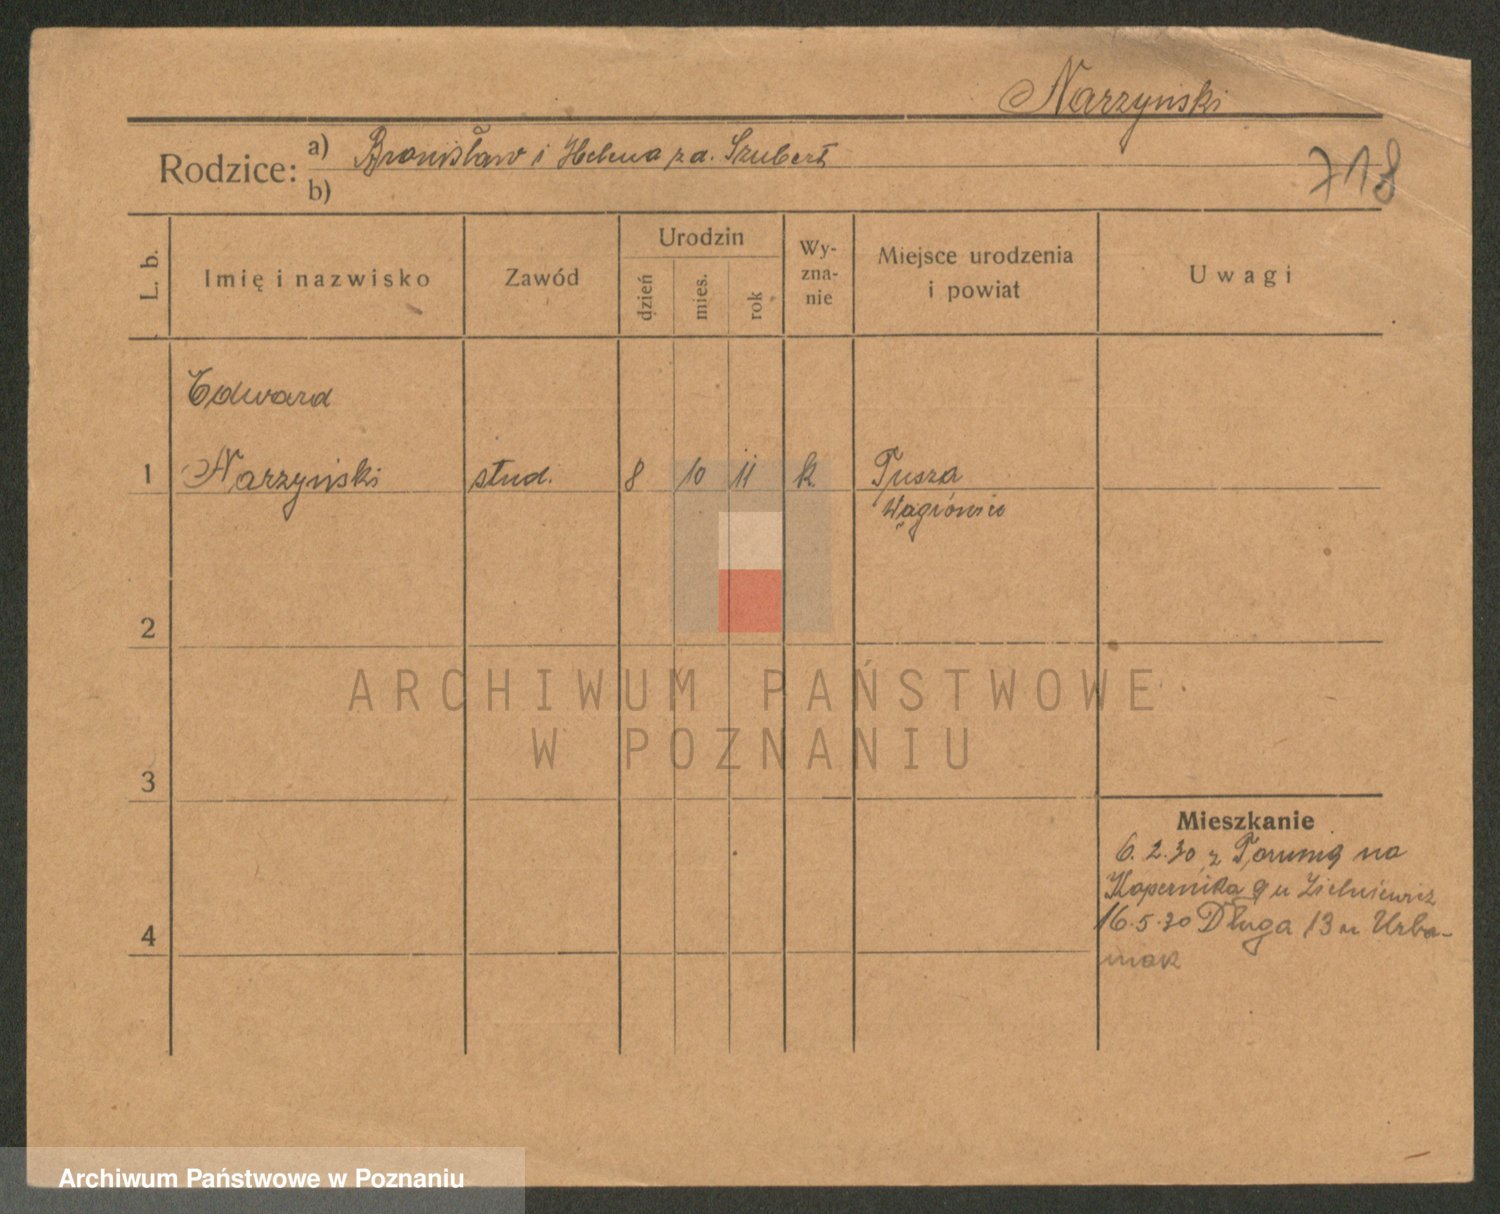 Narzyński
Rodzice: a) Bronisław i Helena z d. Szubert
b)
718
L. b.
Imię i nazwisko
Zawód
Urodzin
dzień
mies.
rok
Wy-
zna-
nie
Miejsce urodzenia
i powiat
Uwagi
Edward
1 Narzyński stud. 8 10 11 k. Tusza
2
3
4
Mieszkanie
6.2.30 z Torunia na
Kopernika 9 u Zieleniewicz
16.5.30 Długa 13 u Urba-
niak
ARCHIWUM PAŃSTWOWE
W POZNANIU
Archiwum Państwowe w Poznaniu